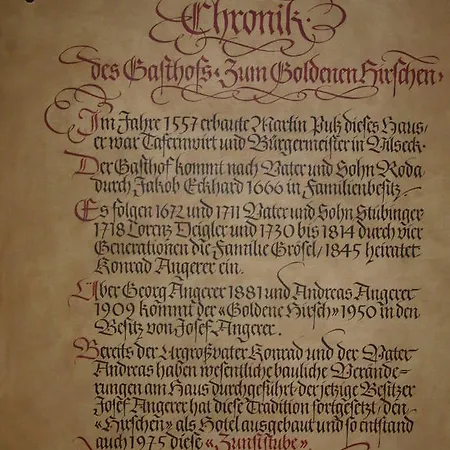 Chronik
des Gasthofs «Zum Goldenen Hirschen»
Im Jahre 1557 erbaute Martin Putz dieses Haus/
er war Tafernwirt und Bürgermeister in Vilseck.
Der Gasthof kommt nach Vater und Sohn Roda
durch Jakob Eckhard 1666 in Familienbesitz.
Es folgen 1672 und 1711 Vater und Sohn Stubinger
1718 Lorenz Deigler und 1730 bis 1814 durch vier
Generationen die Familie Grösel/ 1845 heiratet
Konrad Angerer ein.
Über Georg Angerer 1881 und Andreas Angerer
1909 kommt der «Goldene Hirsch» 1950 in den
Besitz von Josef Angerer.
Bereits der Urgroßvater Konrad und der Vater
Andreas haben wesentliche bauliche Verände-
rungen am Haus durchgeführt. der jetzige Besitzer
Josef Angerer hat diese Tradition fortgesetzt/ den
«Hirschen» als Hotel ausgebaut und so entstand
auch 1975 diese «Zunftstube».